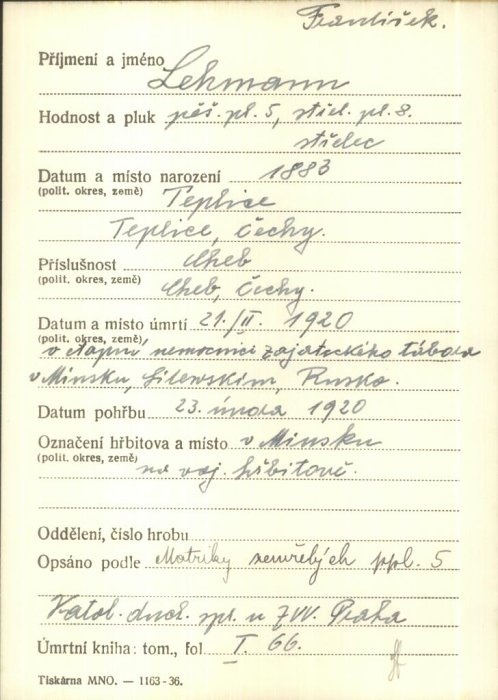 František.
Příjmení a jméno Lehmann
Hodnost a pluk pěš. pl. 5, střel. pl. 8.
střelec
Datum a místo narození 1883
(polit. okres, země) Teplice
Teplice, Čechy.
Příslušnost Cheb
(polit. okres, země) Cheb, Čechy.
Datum a místo úmrtí 21./II. 1920
(polit. okres, země)
v etapní nemocnici zajateckého tábora
v Minsku, Rusko.
Datum pohřbu 23. února 1920
Označení hřbitova a místo v Minsku
(polit. okres, země) na voj. hřbitově.
Oddělení, číslo hrobu
Opsáno podle Matriky zemřelých ppl. 5
Katol. duch. spr. u ZVV. Praha
Úmrtní kniha: tom., fol I. 66.
Tiskárna MNO. — 1163-36.